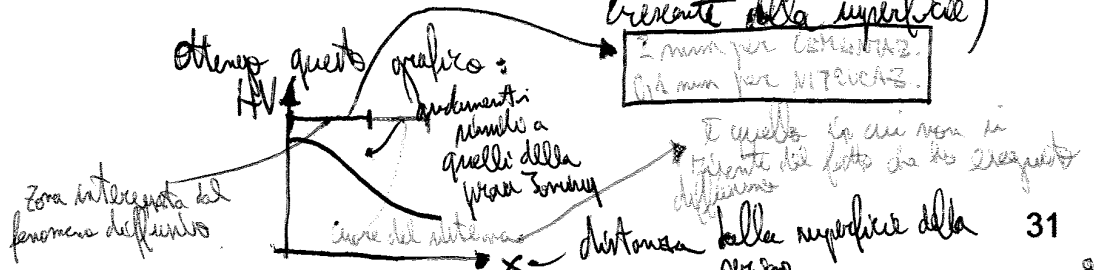 crescente dalla superficie)
Ottengo questo grafico:
HV
2 mm per CEMENTAZ.
0,1 mm per NITRURAZ.
andamenti
simili a
quelli della
prova Jominy
È quello in cui non si
risente del fatto che ho eseguito
diffusione
Zona interessata dal
fenomeno diffusivo
cuore del sistema
x
distanza dalla superficie della
31